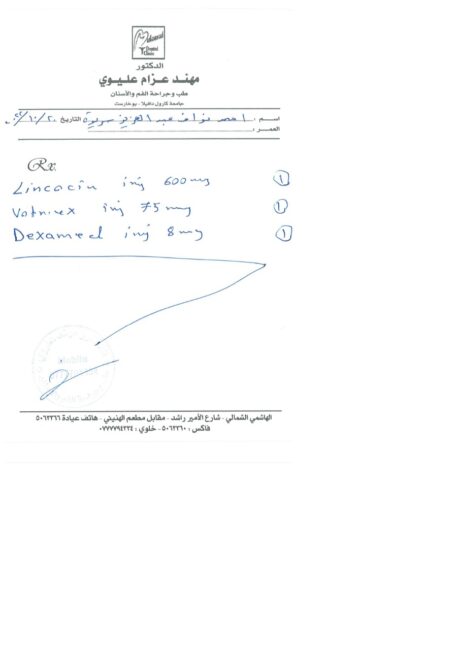 Dental Clinic
الدكتور
مهند عزام عليوي
طب وجراحة الفم والأسنان
جامعة كارول دافيلا - بوخارست
اسم : احمد نواف عبد العزيز التاريخ
العمر :
Rx
Lincocin inj 600 mg 1
inj 75 mg 1
Dexamed inj 8 mg 1
الهاشمي الشمالي - شارع الأمير راشد - مقابل مطعم الهنيني - هاتف عيادة ٥٠٦٣٣٦٦
فاكس : ٥٠٦٣٣٦٠ - خلوي : ٠٧٧٧٧٩٤٣٣٤